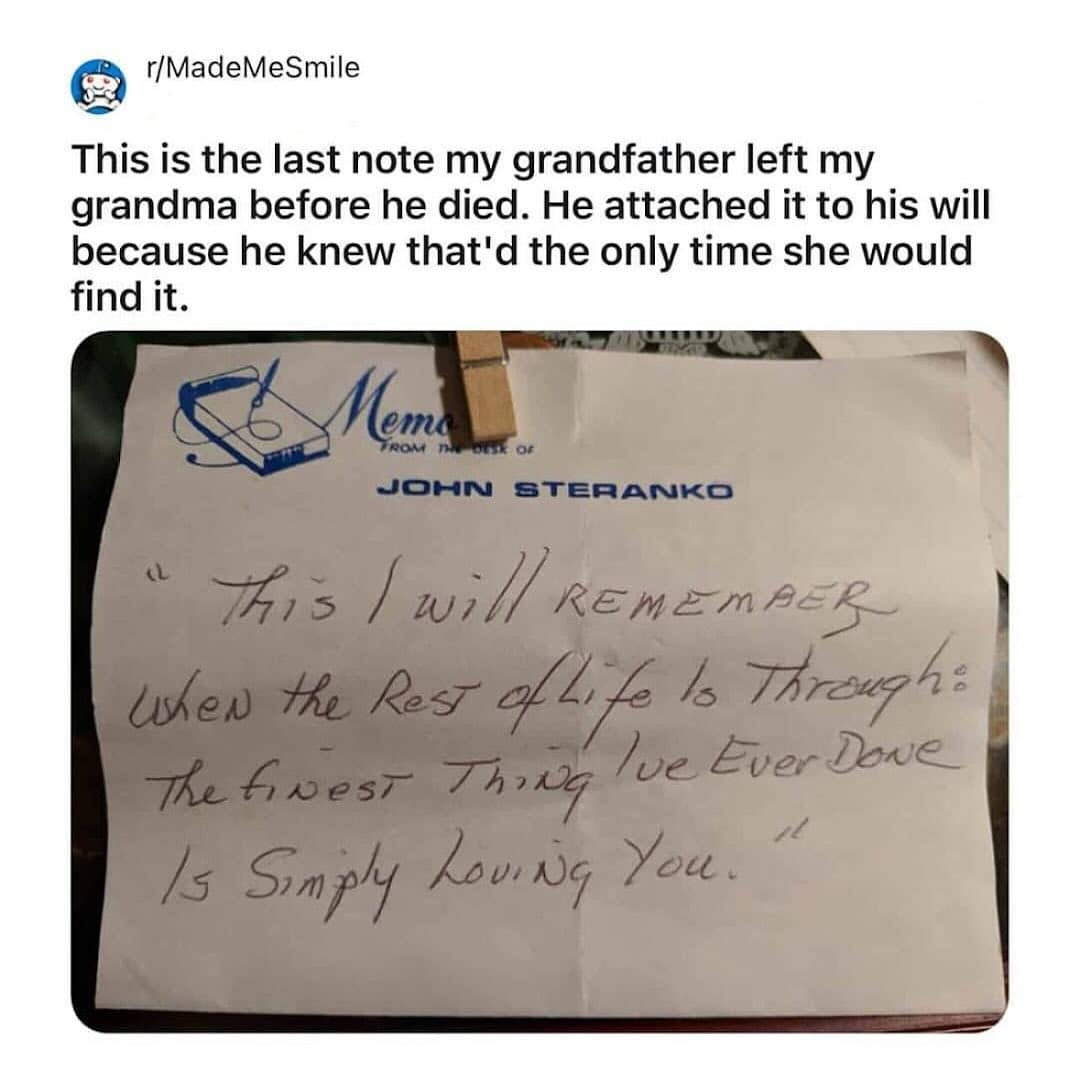 r/MadeMeSmile
This is the last note my grandfather left my
grandma before he died. He attached it to his will
because he knew that'd the only time she would
find it.
Memo
FROM THE DESK OF
JOHN STERANKO
" This I will REMEMBER
when the Rest of Life Is Through:
The finest Thing I've Ever Done
Is Simply Loving You. "